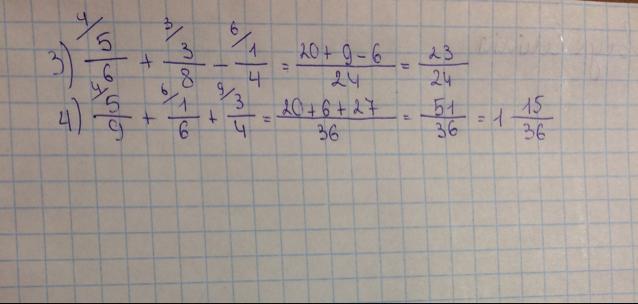 3) ⁴/5/6 + ³/3/8 - ⁶/1/4 = 20+9-6/24 = 23/24
4) ⁴/5/9 + ⁶/1/6 + ⁹/3/4 = 20+6+27/36 = 51/36 = 1 15/36